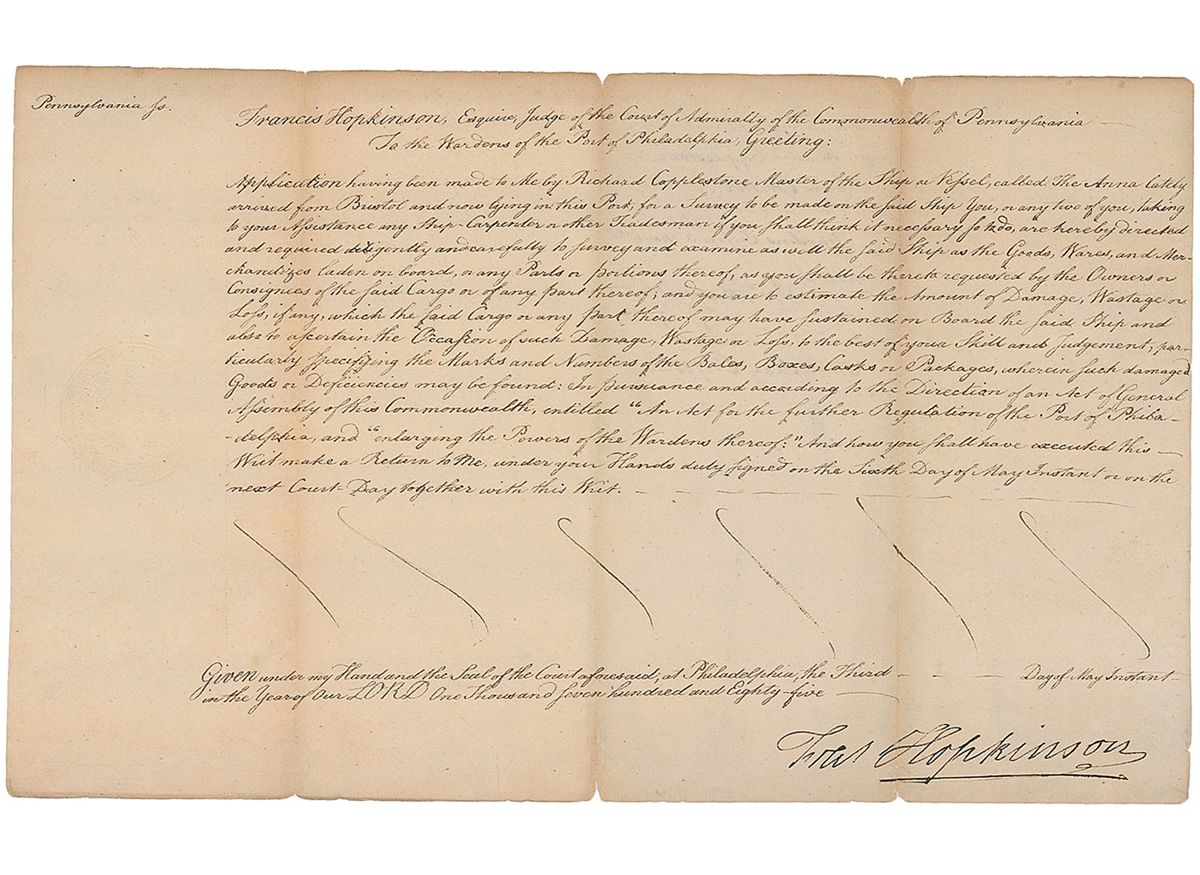 Pennsylvania ſs.
Francis Hopkinson, Esquire, Judge of the Court of Admiralty of the Commonwealth of Pennsylvania
To the Wardens of the Port of Philadelphia, Greeting:
Application having been made to Me by Richard Copplestone Master of the Ship or Veſsel, called The Anna lately
arrived from Bristol and now lying in this Port, for a Survey to be made on the said Ship You, or any two of you, taking
to your Aſsistance any Ship-Carpenter or other Tradesman if you shall think it neceſsary so to do, are hereby directed
and required diligently and carefully to survey and examine as well the said Ship as the Goods, Wares, and Mer-
chandizes laden on board, or any Parts or portions thereof, as you shall be thereto requested by the Owners or
Consignees of the said Cargo or of any part thereof; and you are to estimate the Amount of Damage, Wastage or
Loſs, if any, which the said Cargo or any part thereof may have sustained on Board the said Ship and
also to ascertain the Occasion of such Damage, Wastage or Loſs, to the best of your Skill and Judgement, par-
ticularly specifying the Marks and Numbers of the Bales, Boxes, Casks or Packages, wherein such damaged
Goods or Deficiencies may be found: In pursuance and according to the Direction of an Act of General
Aſsembly of this Commonwealth, entitled "An Act for the further Regulation of the Port of "Phila-
-delphia, and "enlarging the Powers of the Wardens thereof:" And how you shall have executed this
Writ make a Return to Me, under your Hands duly signed on the Sixth Day of May Instant or on the
next Court-Day together with this Writ.
Given under my Hand and the Seal of the Court aforesaid, at Philadelphia, the Third Day of May Instant
in the Year of Our LORD One Thousand seven hundred and Eighty-five
Fras Hopkinson